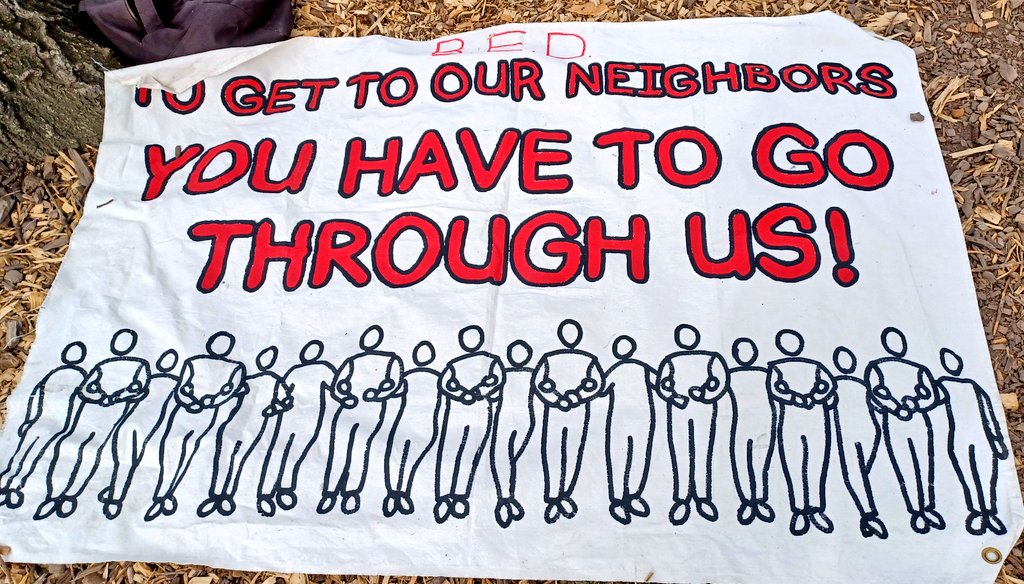 R.E.D.
TO GET TO OUR NEIGHBORS
YOU HAVE TO GO
THROUGH US!